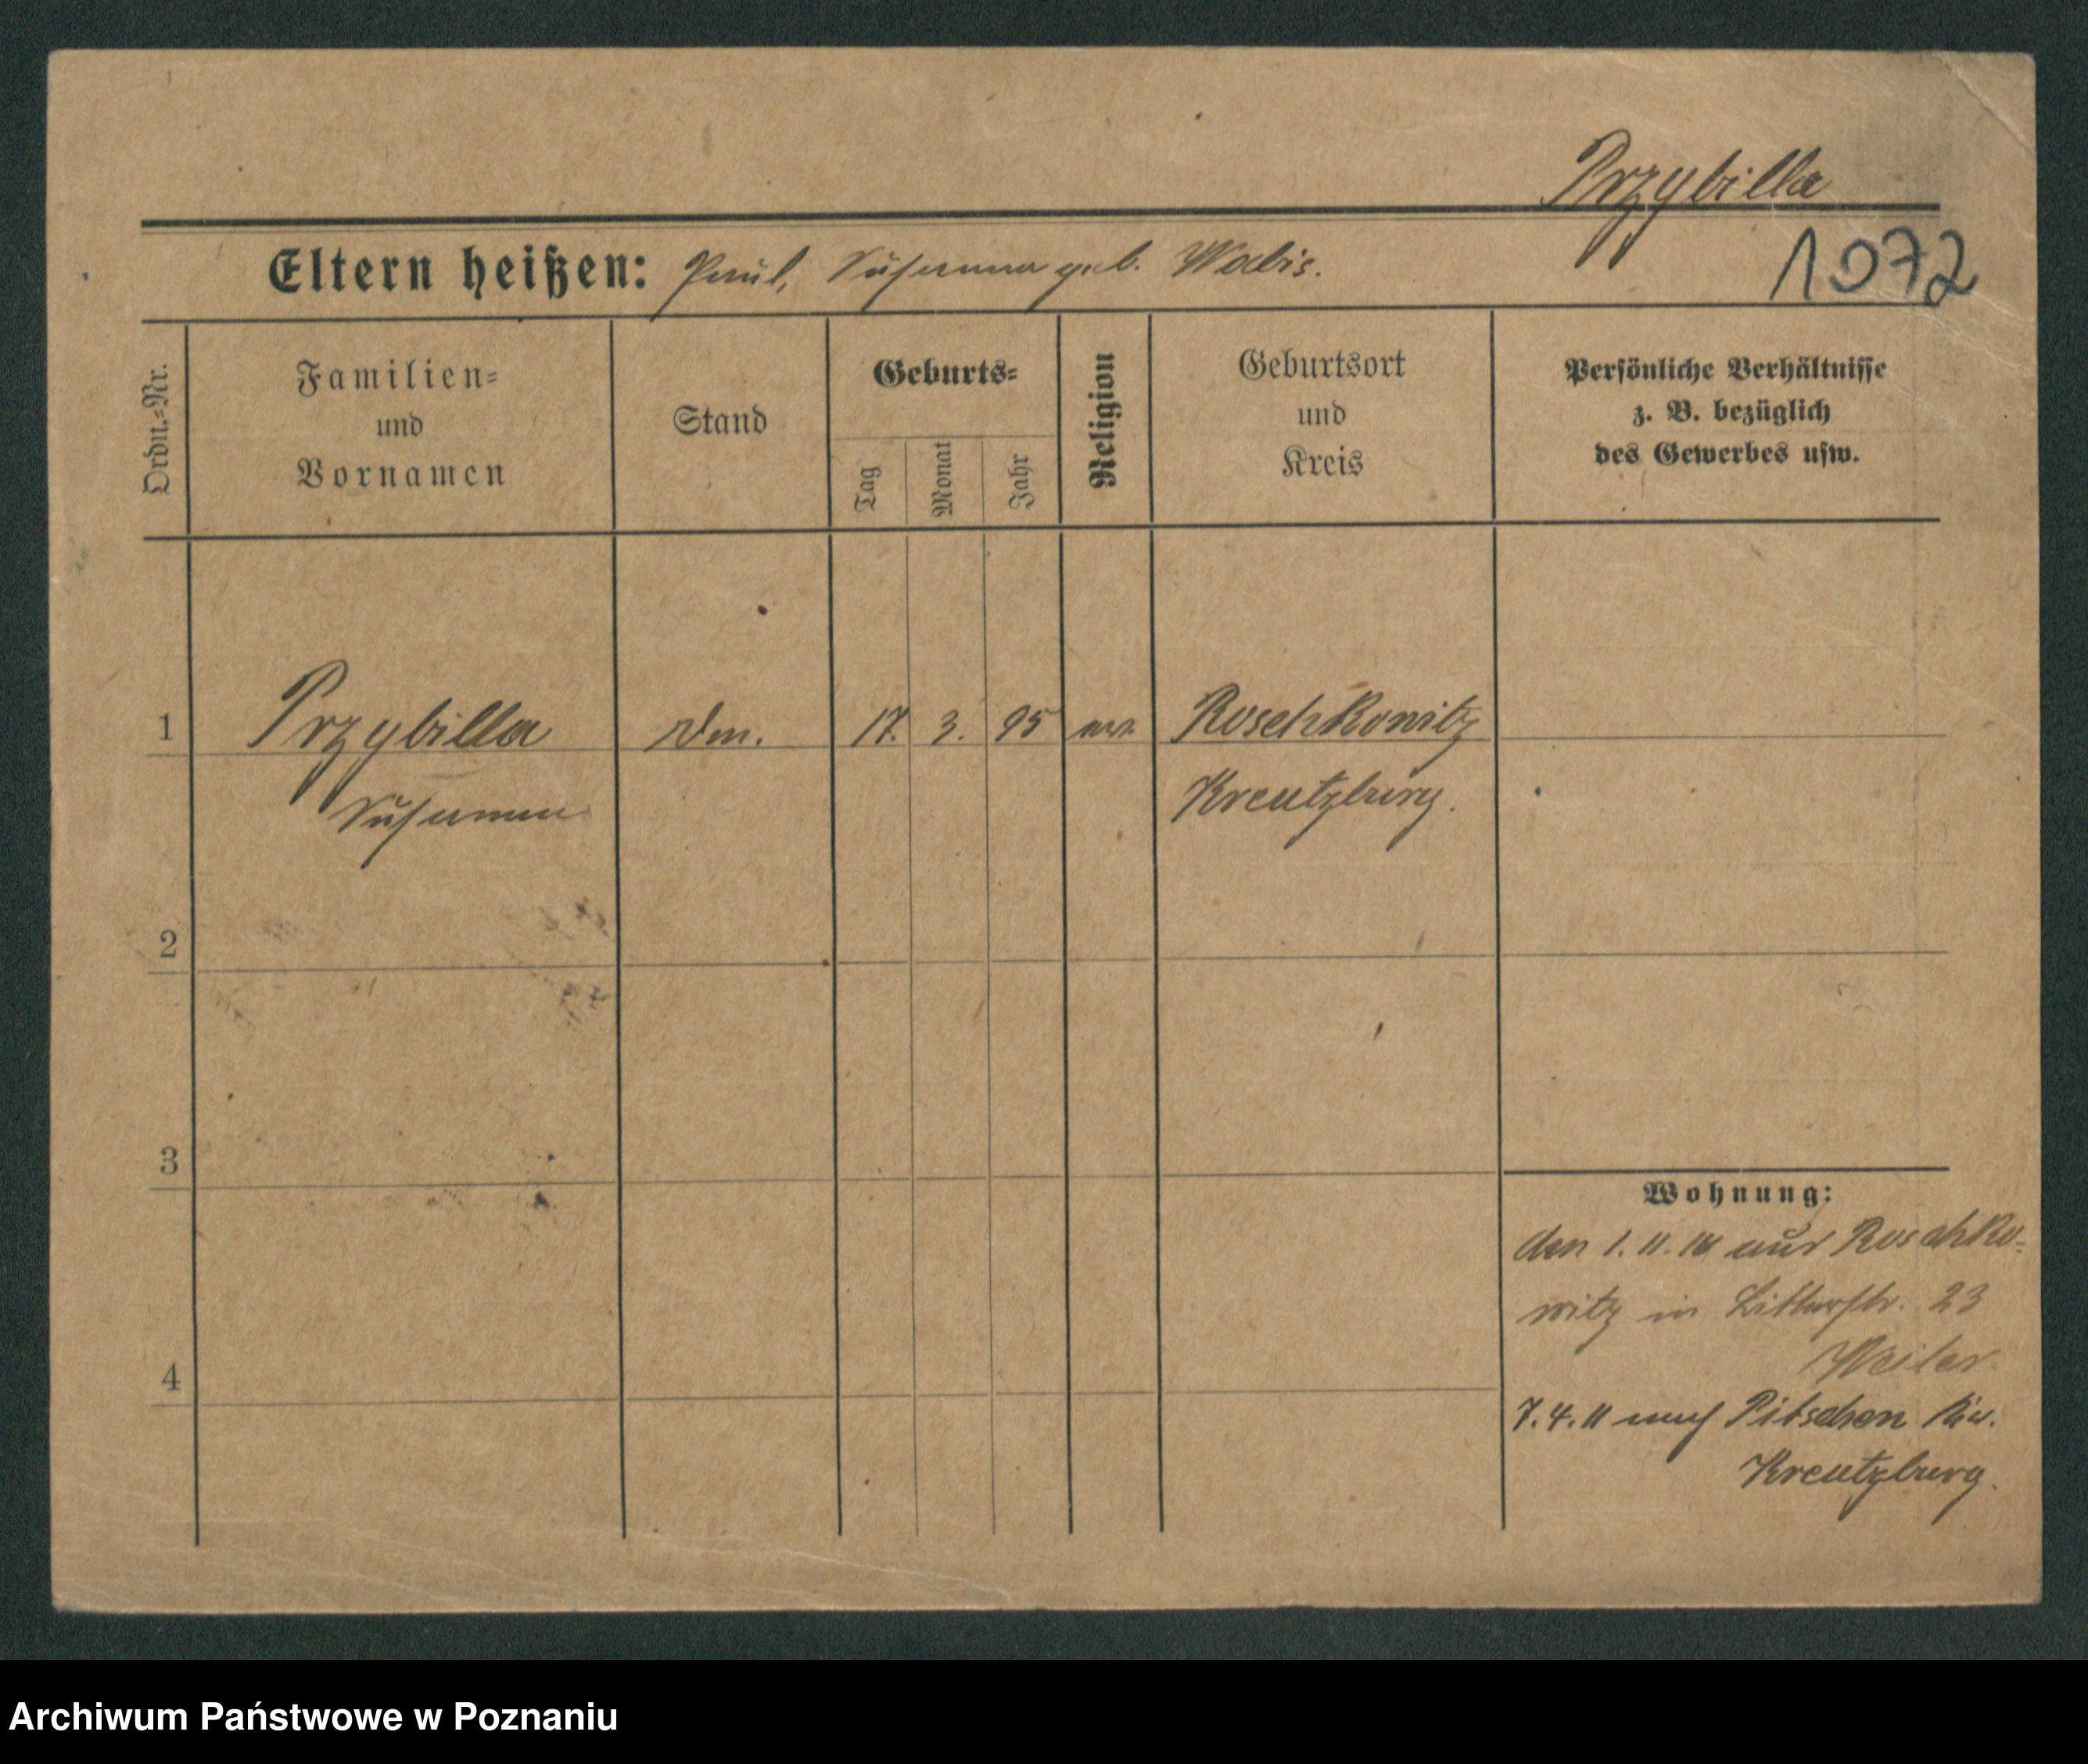 Przybilla
Eltern heißen: Paul, Susanna geb. Wabis.
1072
Ordn.-Nr.
Familien-
und
Vornamen
Stand
Geburts-
Tag
Monat
Jahr
Religion
Geburtsort
und
Kreis
Persönliche Verhältnisse
z. B. bezüglich
des Gewerbes usw.
1 Przybilla 17. 3. 95 Roschkowitz
Susanna Kreutzburg.
2
3
4
Wohnung:
den 1. 11. aus Roschko-
witz in 23
7. 4. 11 nach Pitschen
Kreutzburg.
Archiwum Państwowe w Poznaniu